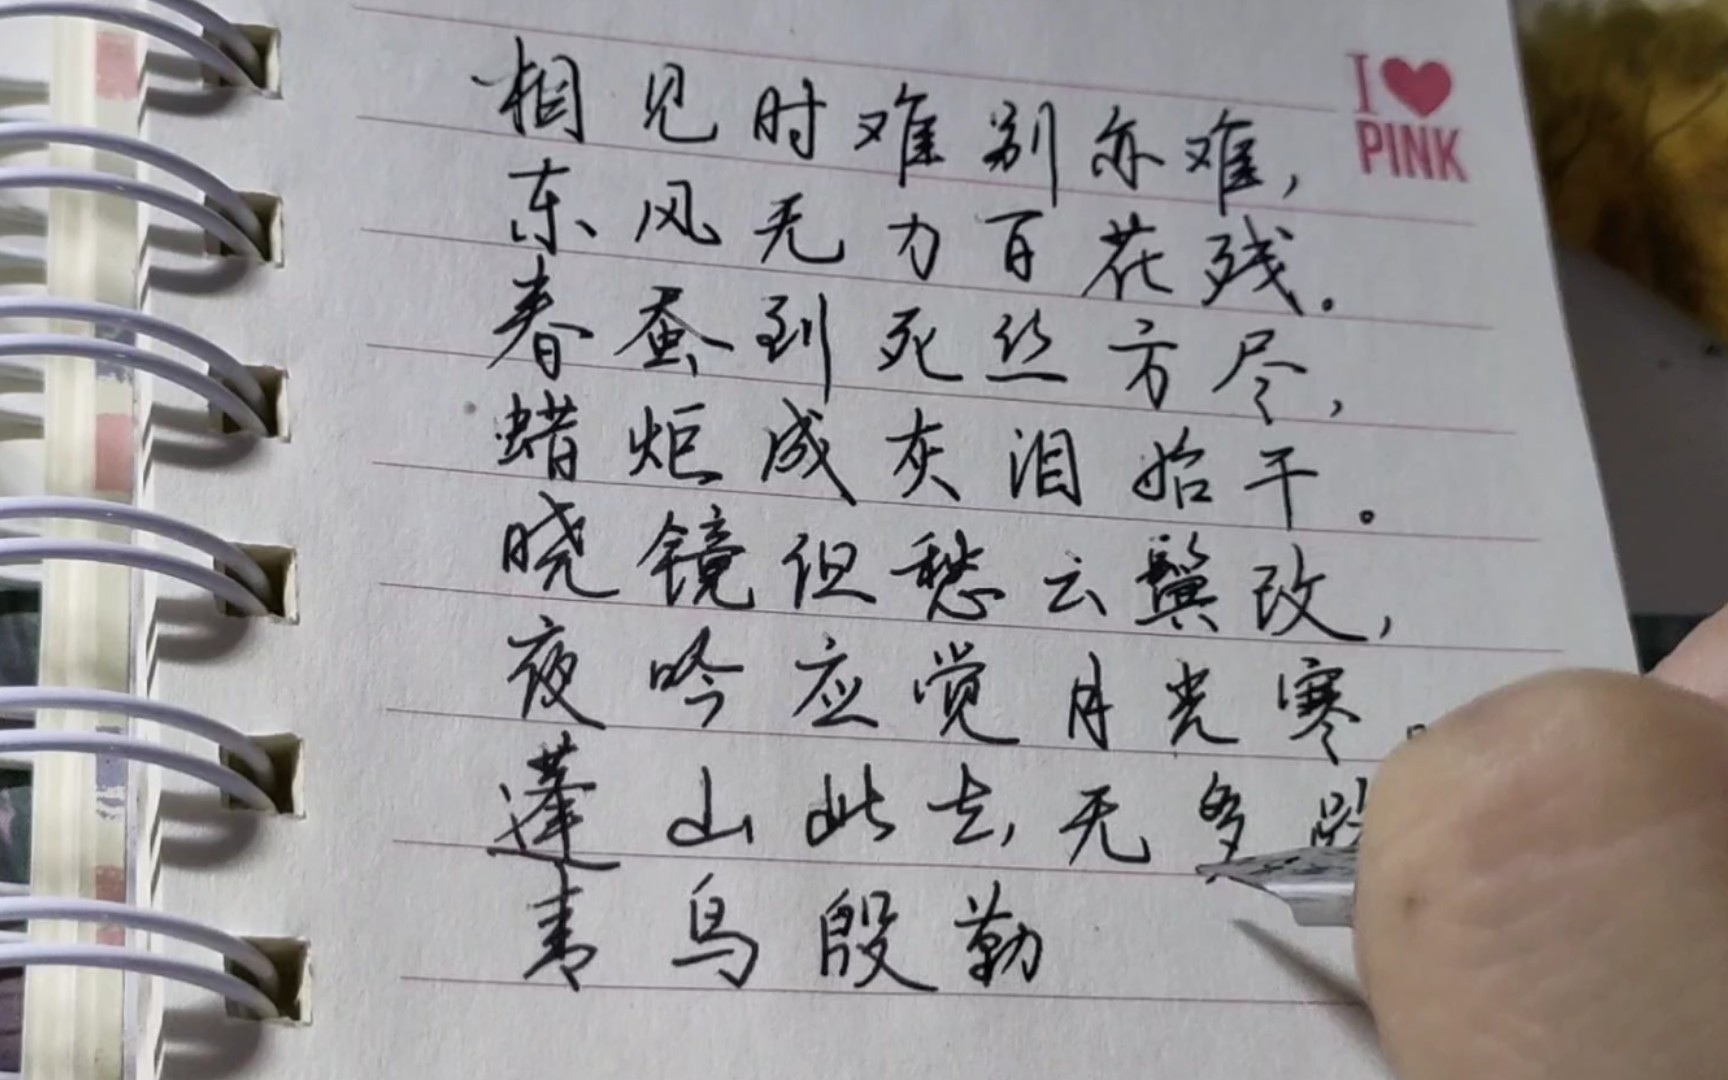 I ❤ PINK
相见时难别亦难,
东风无力百花残。
春蚕到死丝方尽,
蜡炬成灰泪始干。
晓镜但愁云鬓改,
夜吟应觉月光寒。
蓬山此去,无多
青鸟殷勤